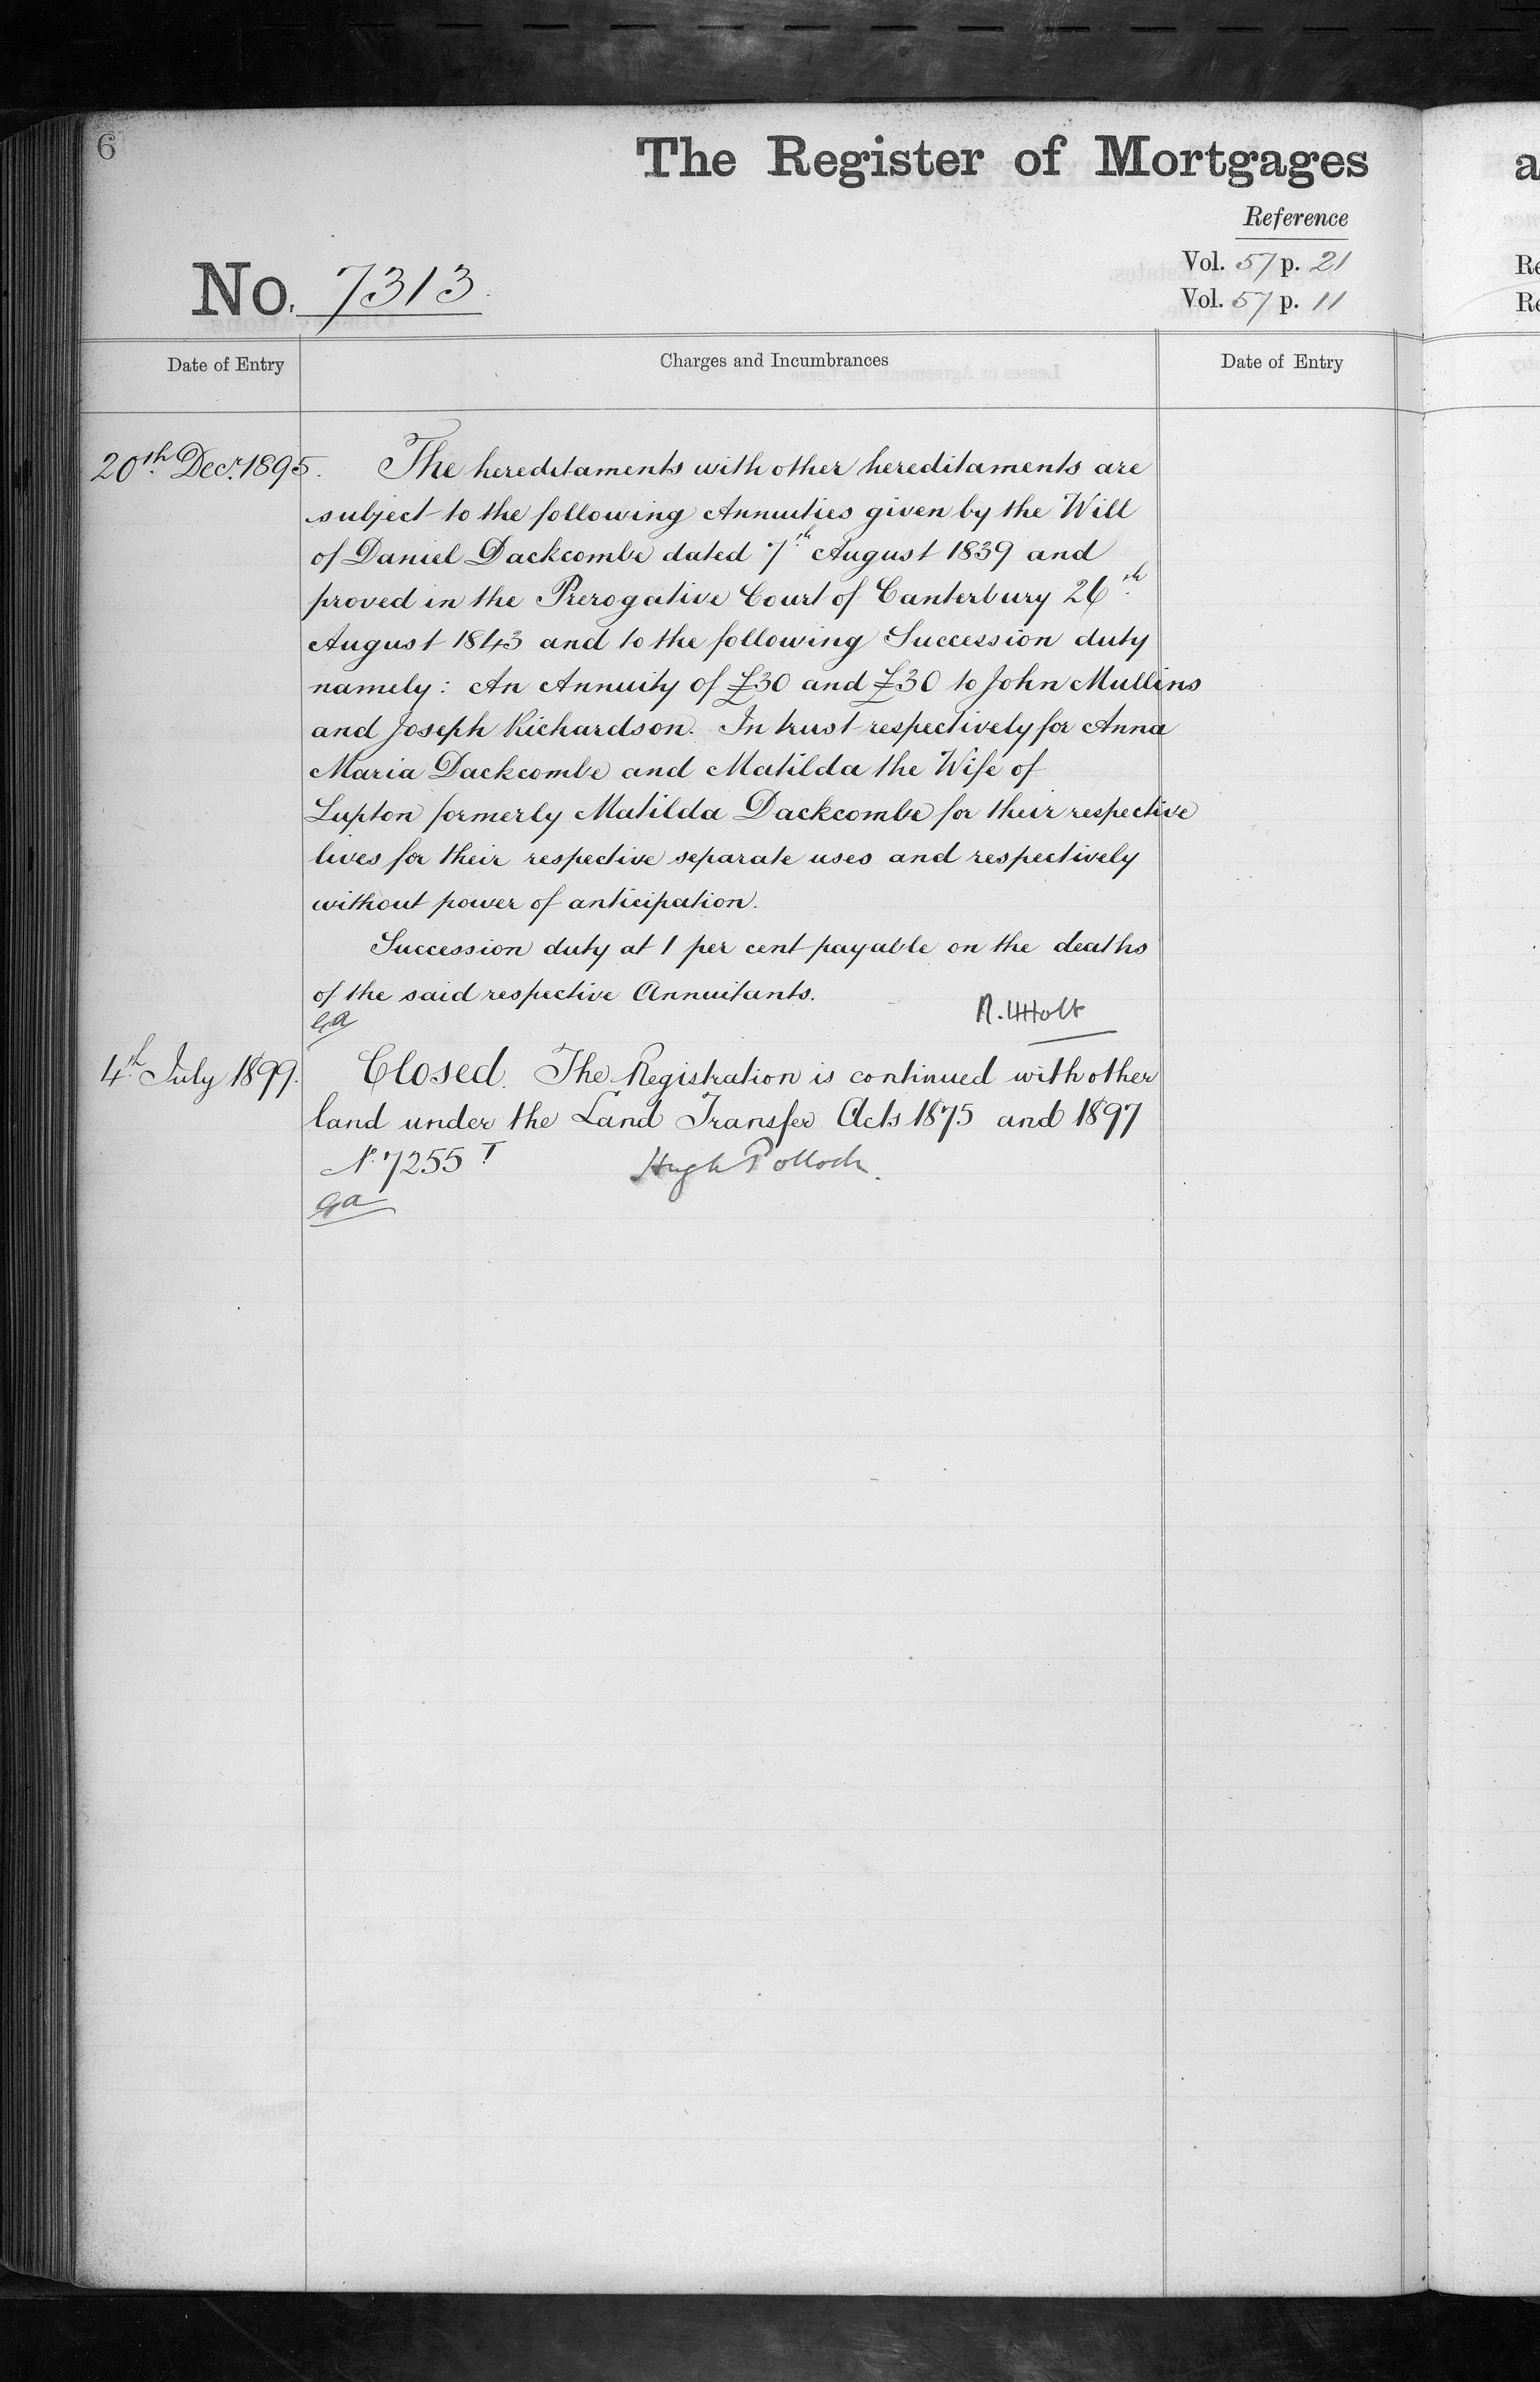 6
The Register of Mortgages
Reference
No. 7313.
Vol. 57 p. 21
Vol. 57 p. 11
Date of Entry
Charges and Incumbrances
Date of Entry
20th Decr. 1895. The hereditaments with other hereditaments are
subject to the following Annuities given by the Will
of Daniel Dackcombe dated 7th August 1839 and
proved in the Prerogative Court of Canterbury 26th
August 1843 and to the following Succession duty
namely: An Annuity of £30 and £30 to John Mullins
and Joseph Richardson. In trust respectively for Anna
Maria Dackcombe and Matilda the Wife of
Lupton formerly Matilda Dackcombe for their respective
lives for their respective separate uses and respectively
without power of anticipation.
Succession duty at 1 per cent payable on the deaths
of the said respective Annuitants.
Holt
4th July 1899. Closed. The Registration is continued with other
land under the Land Transfer Acts 1875 and 1897
No. 7255 T Hugh Pollock.
a
Re
Re